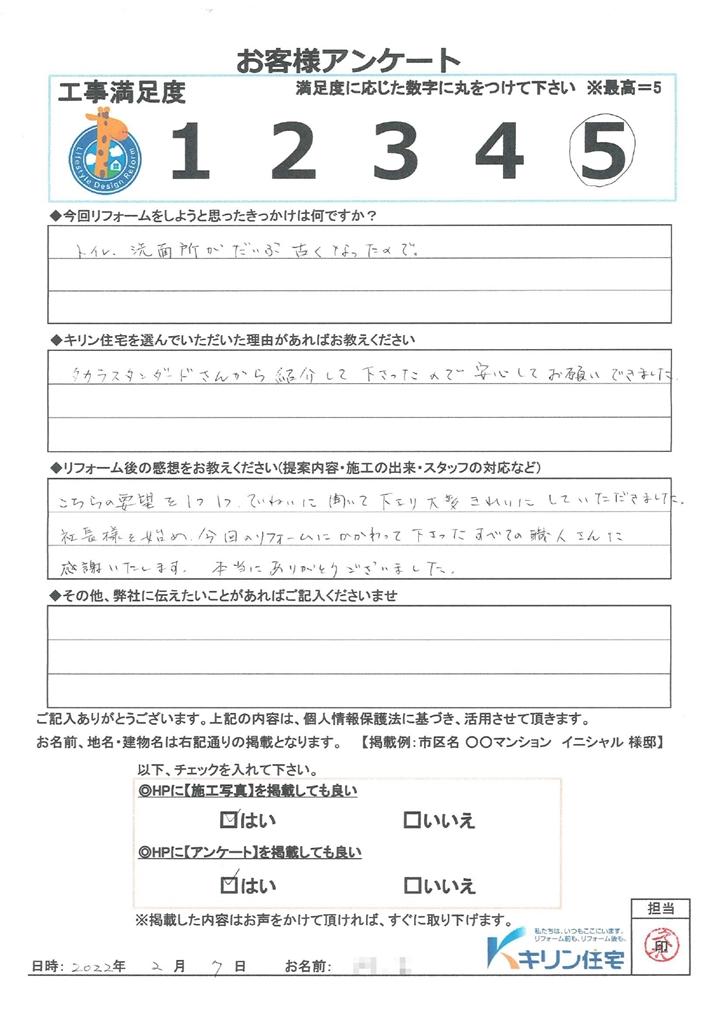 お客様アンケート
工事満足度
満足度に応じた数字に丸をつけて下さい ※最高＝5
Lifestyle Design Reform
1 2 3 4 5
◆今回リフォームをしようと思ったきっかけは何ですか？
トイレ、洗面所がだいぶ古くなったので。
◆キリン住宅を選んでいただいた理由があればお教えください
タカラスタンダードさんから紹介して下さったので安心してお願いできました。
◆リフォーム後の感想をお教えください(提案内容・施工の出来・スタッフの対応など)
こちらの要望を1つ1つ、ていねいに聞いて下さり大変きれいにしていただきました。
社長様を始め、今回のリフォームにかかわって下さったすべての職人さんに
感謝いたします。 本当にありがとうございました。
◆その他、弊社に伝えたいことがあればご記入くださいませ
ご記入ありがとうございます。上記の内容は、個人情報保護法に基づき、活用させて頂きます。
お名前、地名・建物名は右記通りの掲載となります。 【掲載例：市区名 〇〇マンション イニシャル 様邸】
以下、チェックを入れて下さい。
◎HPに【施工写真】を掲載しても良い
☑はい □いいえ
◎HPに【アンケート】を掲載しても良い
☑はい □いいえ
※掲載した内容はお声をかけて頂ければ、すぐに取り下げます。
担当
印
私たちは、いつもここにいます。
リフォーム前も、リフォーム後も。
キリン住宅
日時： 2022年 2月 7日 お名前：